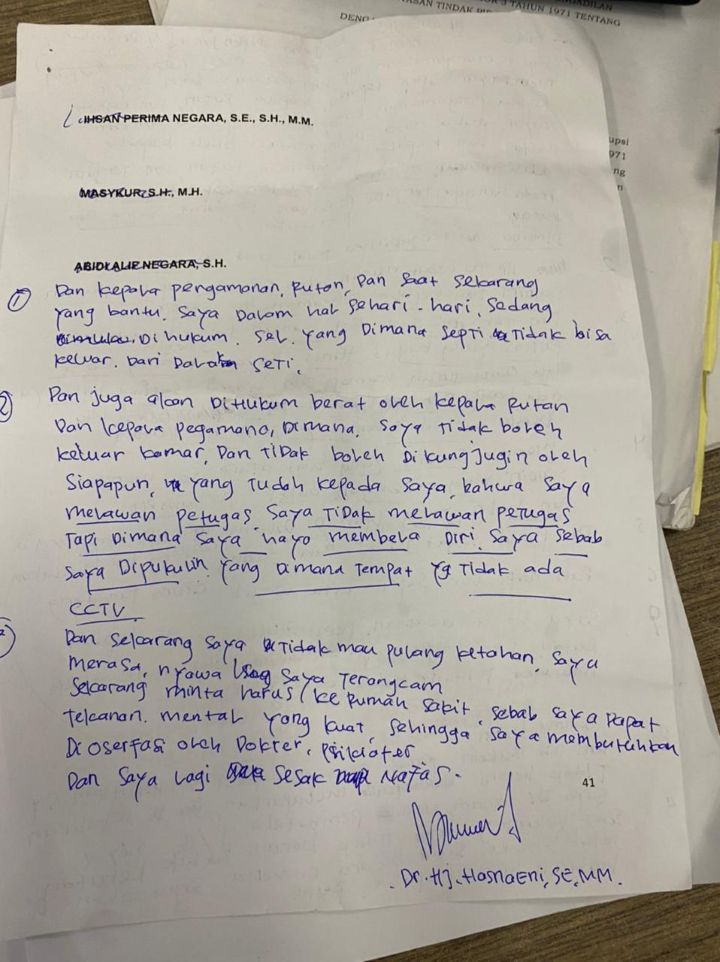 TAHUN 1971 TENTANG
DENG
upsi
971
ng
n
IHSAN PERIMA NEGARA, S.E., S.H., M.M.
MASYKUR, S.H., M.H.
ABIDI ALIF NEGARA, S.H.
1 Dan kepala pengamanan, Rutan, Dan saat sekarang
yang bantu. Saya Dalam hal sehari-hari, sedang
Di hukum. Sel. yang Dimana septi Tidak bisa
keluar. Dari Dalam seti.
2 Dan juga akan DiHukum berat oleh kepala Rutan
Dan kepala pegamana, Dimana, Saya Tidak boleh
keluar kamar, Dan Tidak boleh Dikungjugin oleh
Siapapun, yang Tuduh kepada saya, bahwa saya
melawan petugas. Saya Tidak melawan petugas
Tapi Dimana saya hayo membela Diri. Saya Sebab
Saya Dipukulin yang Dimana Tempat yg Tidak ada
CCTV.
Dan sekarang saya Tidak mau pulang ketahan, saya
merasa, nyawa saya Terangcam
sekarang minta harus/ke Rumah sakit, sebab saya Dapat
Tekanan. mental yang kuat, sehingga saya membutuhkan
Di oserfasi oleh Dokter, Psikiater
Dan Saya lagi sesak Nafas.
41
Dr. Hj. HasnaEni, SE, MM.